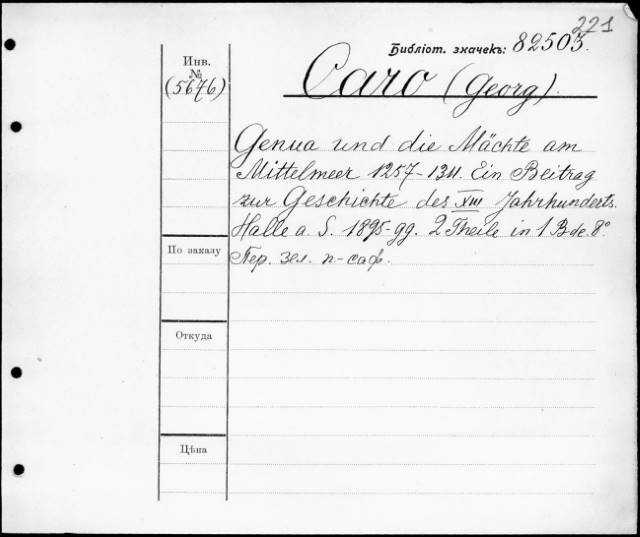 221
Библіот. значекъ: 82503.
Инв.
№
(5676)
Caro (Georg).
Genua und die Mächte am
Mittelmeer 1257-1311. Ein Beitrag
zur Geschichte des XIII Jahrhunderts.
Halle a. S. 1895-99. 2 Theile in 1 Bde. 8°
Пер. зел. п-саф.
По заказу
Откуда
Цѣна